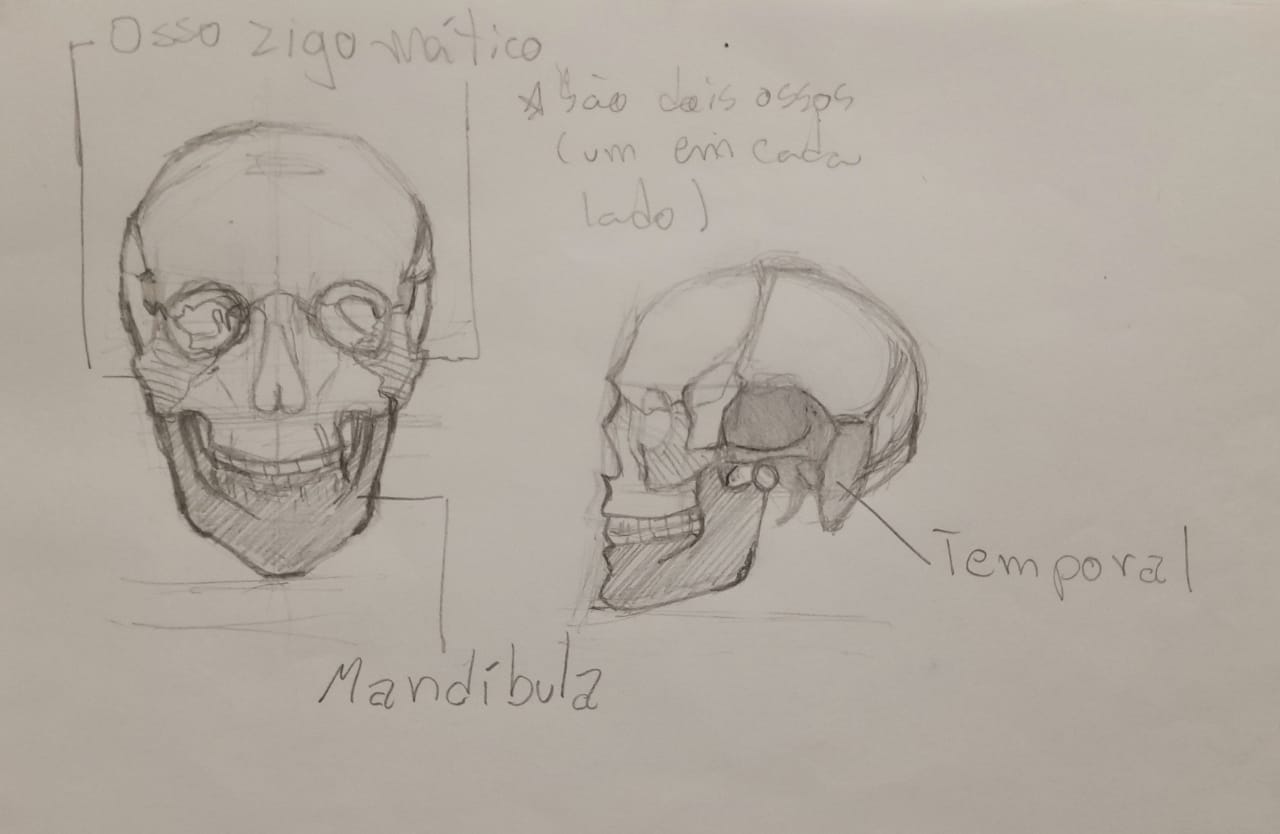 Osso zigomático
*São dois ossos
(um em cada
lado)
Temporal
Mandíbula